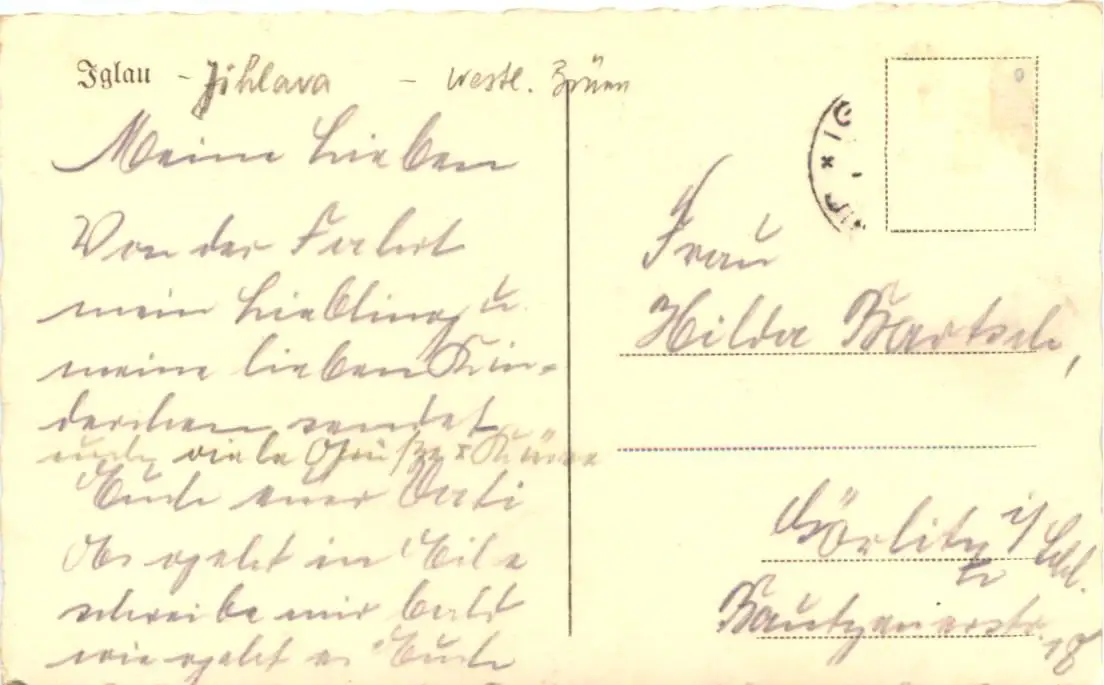 Iglau - Jihlava - westl. Brünn
Meine Lieben
Von der Fahrt
mein Liebling u.
meine lieben Kin-
derchen sendet
euch viele Grüße + Küsse
Euch euer Vati
Es geht in Eile
schreibe mir bald
wie geht es Euch
Frau
Hilda Bartsch,
Görlitz i/ Schl.
Bautzenerstr. 18